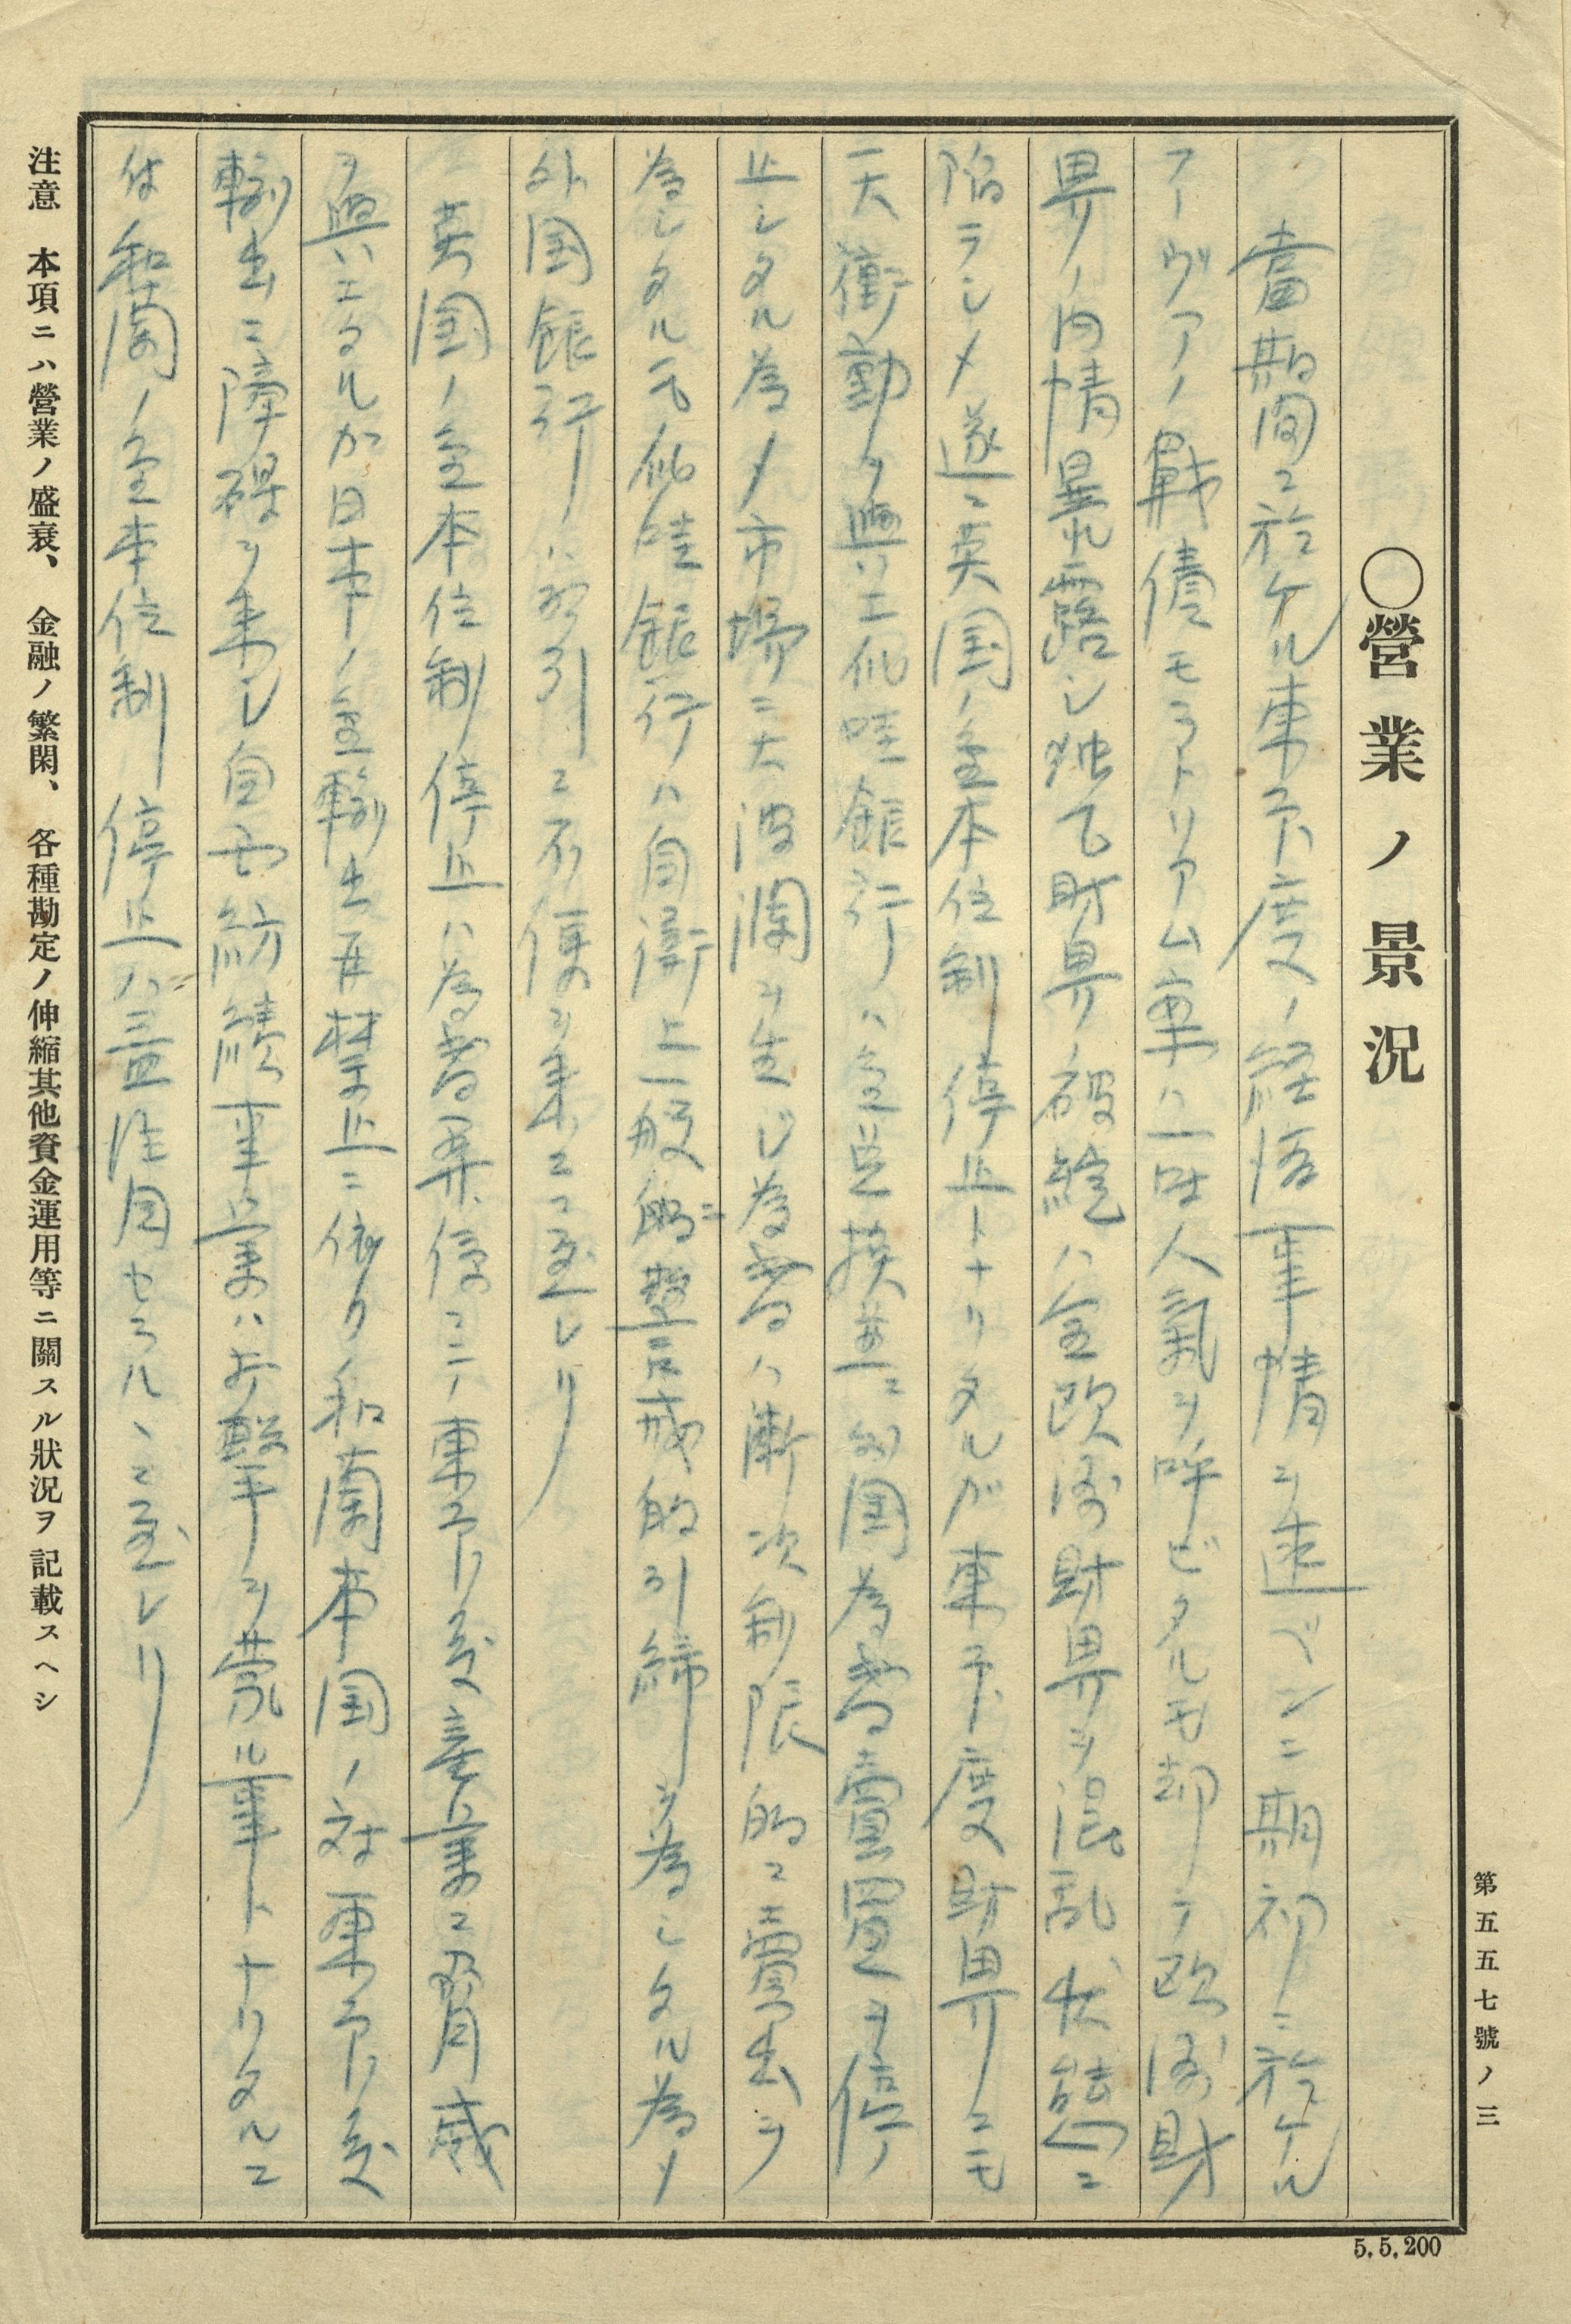 第五五七號ノ三
○營業ノ景況
當期間ニ於ケル東印度ノ経済事情ヲ述ベンニ期初ニ於ケル
フーヴアノ戰債モラトリアム案ハ一時人氣ヲ呼ビタルモ却ツテ欧洲財
界ノ内情暴露シ独乙財界ノ破綻ハ全欧洲財界ヲ混乱状態ニ
陥ラシメ遂ニ英国ノ金本位制停止トナリタルガ東印度財界ニモ
一大衝動ヲ與ヘ爪哇銀行ハ金兌換並ニ外国為替賣買ヲ停
止シタル為メ市場ニ大波瀾ヲ生ジ為替ハ漸次制限的ニ賣出ヲ
為シタルモ爪哇銀行ハ自衛上一般的ニ警戒的引締ヲ為シタル為メ
外国銀行ハ取引ニ不便ヲ来スニ至レリ
英国ノ金本位制停止ハ為替暴落ニテ東印度産業ニ脅威
ヲ與ヘエタルガ日本ノ金輸出再禁止ニ依リ和蘭本国ノ対東印度
輸出ニ障碍ヲ来シ自然紡績事業ハ打撃ヲ蒙ル事トナリタルニ
付和蘭ノ金本位制停止ハ益注目セラルヽニ至レリ
注意 本項ニハ營業ノ盛衰、金融ノ繁閑、各種勘定ノ伸縮其他資金運用等ニ關スル狀況ヲ記載スヘシ
5,5,200